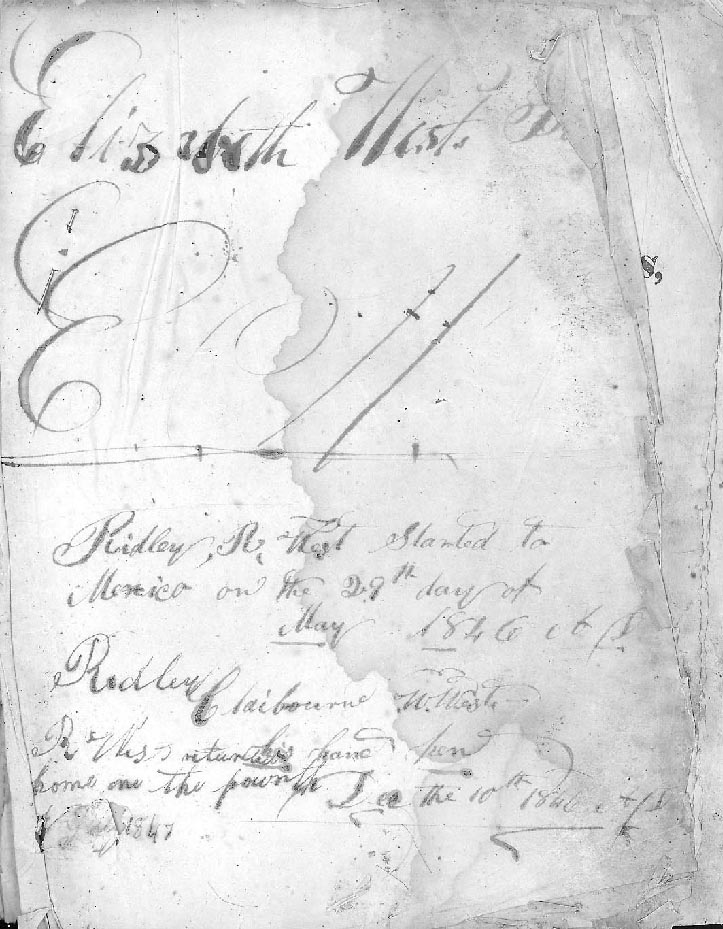 Elizabeth West.
E
Ridley, R, West Started to
Mexico on the 29th day of
May 1846 A D
Ridley
Claibourne W. West
R West returned his hand pen
home one the fourth Dec the 10th 1846 A D
1847